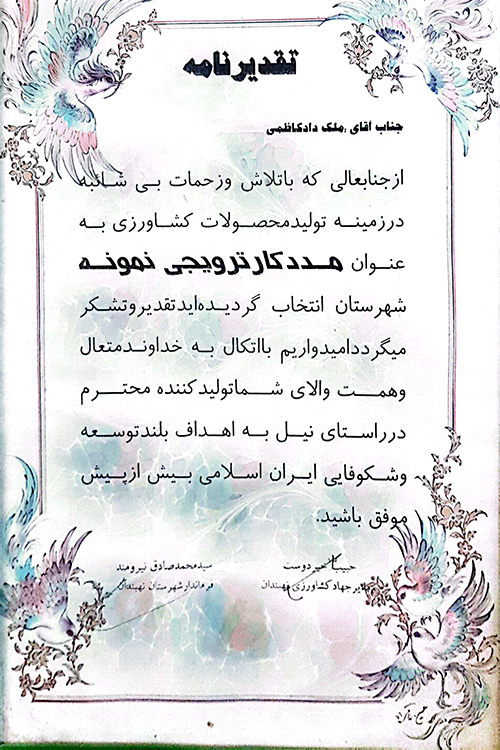 تقدیرنامه
جناب آقای :ملک دادکاظمی
ازجنابعالی که باتلاش وزحمات بی شائبه
درزمینه تولیدمحصولات کشاورزی به
عنوان مددکارترویجی نمونه
شهرستان انتخاب گردیده‌ایدتقدیروتشکر
میگرددامیدواریم بااتکال به خداوندمتعال
وهمت والای شماتولیدکننده محترم
درراستای نیل به اهداف بلندتوسعه
وشکوفایی ایران اسلامی بیش ازپیش
موفق باشید.
سیدمحمدصادق نیرومند
فرماندارشهرستان نهبندان
جهادکشاورزی نهبندان